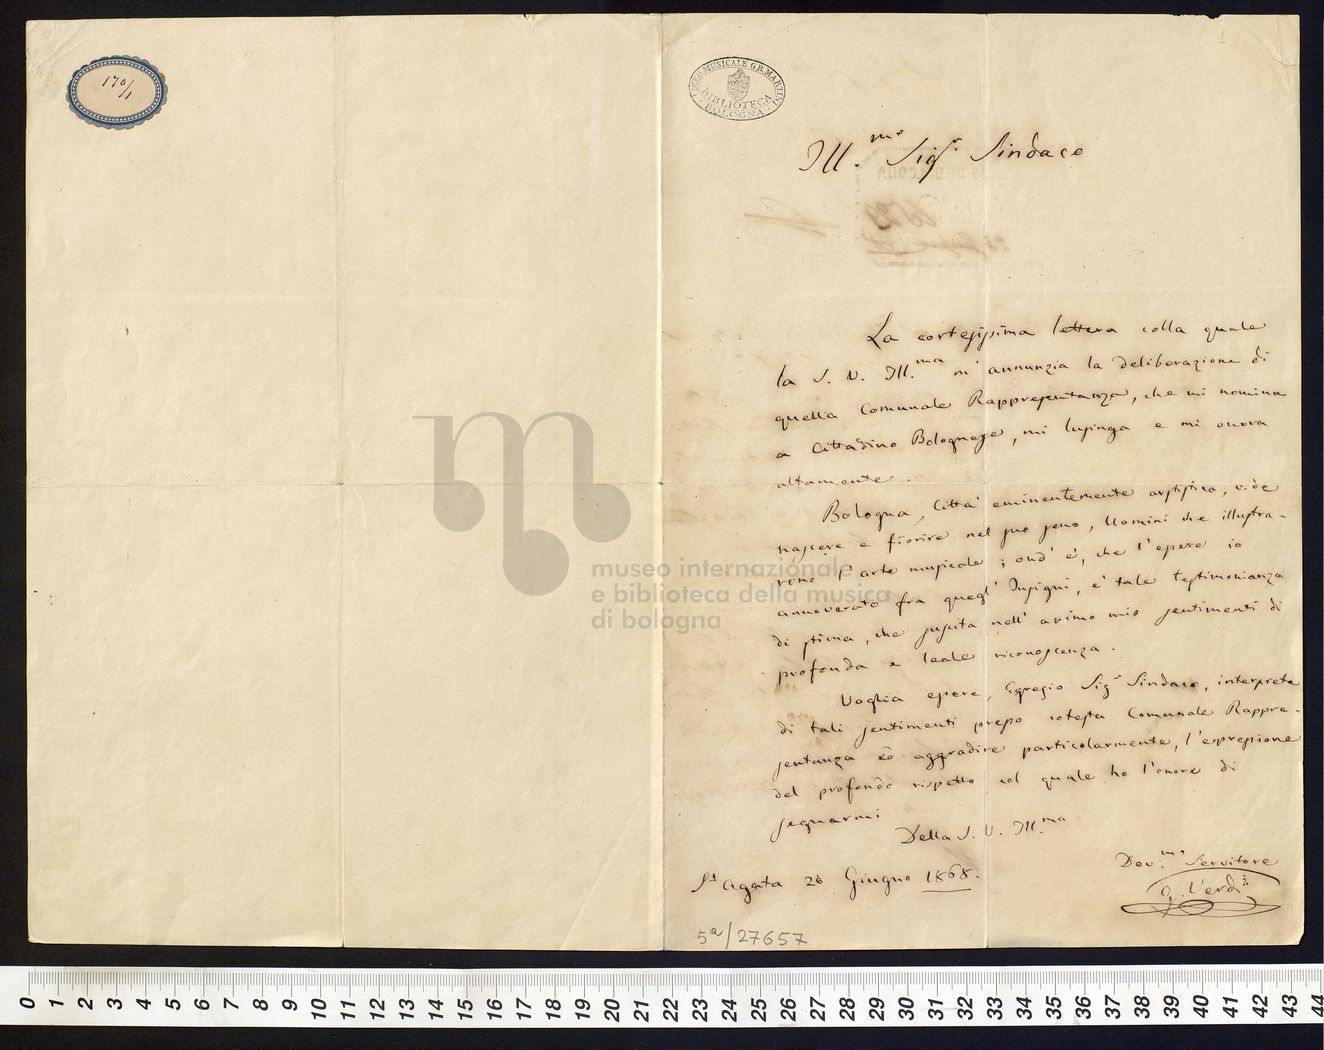 170/1
LICEO MUSICALE G.B. MARTINI
BIBLIOTECA
BOLOGNA
Ill.mo Sigr. Sindaco
La cortesissima lettera colla quale
la S. V. Ill.ma m'annunzia la deliberazione di
quella Comunale Rappresentanza, che mi nomina
a Cittadino Bolognese, mi lusinga e mi onora
altamente.
Bologna, Città eminentemente artistica, vide
nascere e fiorire nel suo seno, Uomini che illustra-
rono l'arte musicale; ond'è, che l'essere io
annoverato fra quegl'Insigni, è tale testimonianza
di stima, che suscita nell'animo mio sentimenti di
profonda e leale riconoscenza.
Voglia essere, Egregio Sigr Sindaco, interprete
di tali sentimenti presso cotesta Comunale Rappre-
sentanza ed aggradire particolarmente, l'espressione
del profondo rispetto col quale ho l'onore di
segnarmi
Della S. V. Ill.ma
Dev.mo Servitore
G. Verdi
St Agata 20 Giugno 1868.
5a/27657
museo internazionale
e biblioteca della musica
di bologna
0 1 2 3 4 5 6 7 8 9 10 11 12 13 14 15 16 17 18 19 20 21 22 23 24 25 26 27 28 29 30 31 32 33 34 35 36 37 38 39 40 41 42 43 44